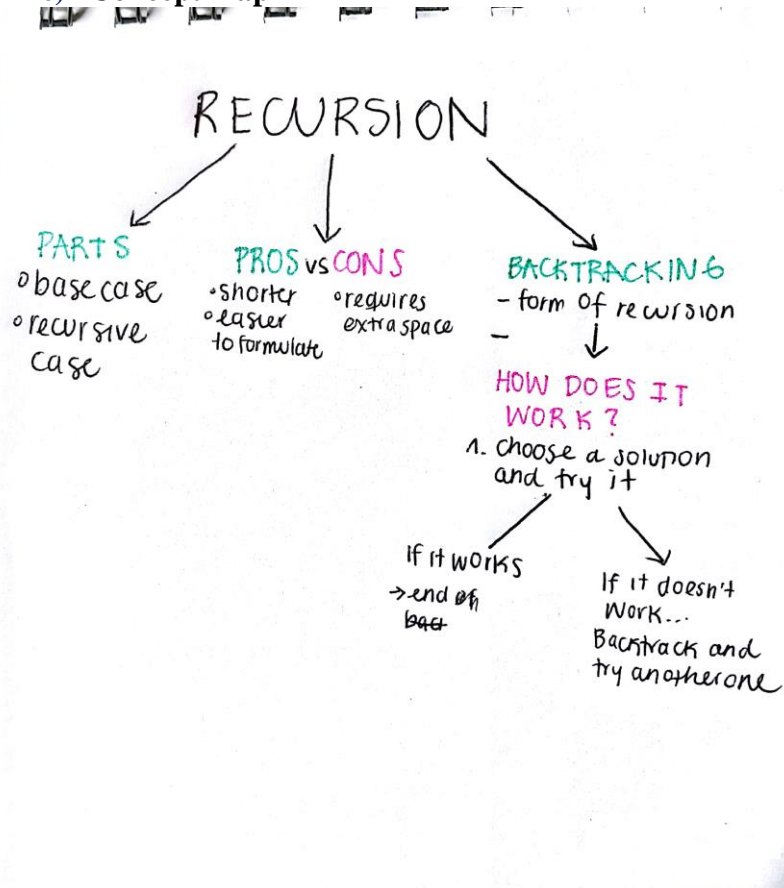 RECURSION
PARTS
base case
recursive
case
PROS vs CONS
• shorter
• easier
to formulate
• requires
extra space
BACKTRACKING
- form of recursion
-
HOW DOES IT
WORK?
1. choose a solution
and try it
If it works
→ end
If it doesn't
work...
Backtrack and
try another one